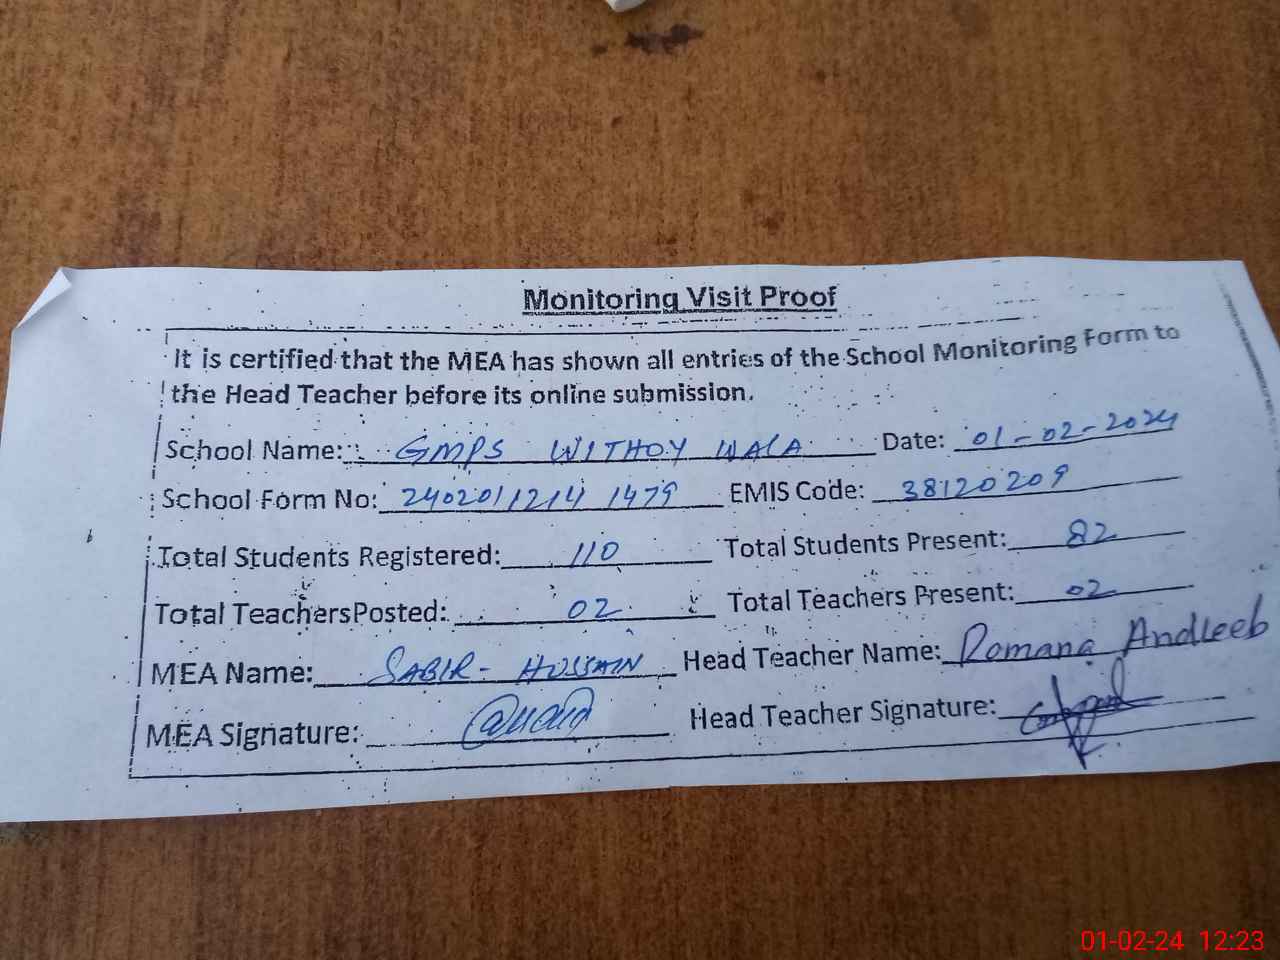 Monitoring Visit Proof
It is certified that the MEA has shown all entries of the School Monitoring Form to
the Head Teacher before its online submission.
School Name: GMPS WITHOY WALA Date: 01-02-2024
School Form No: 2402011214 1479 EMIS Code: 38120209
Total Students Registered: 110 Total Students Present: 82
Total TeachersPosted: 02 Total Teachers Present: 02
MEA Name: SABIR - HUSSAIN Head Teacher Name: Romana Andleeb
MEA Signature: Head Teacher Signature:
01-02-24 12:23